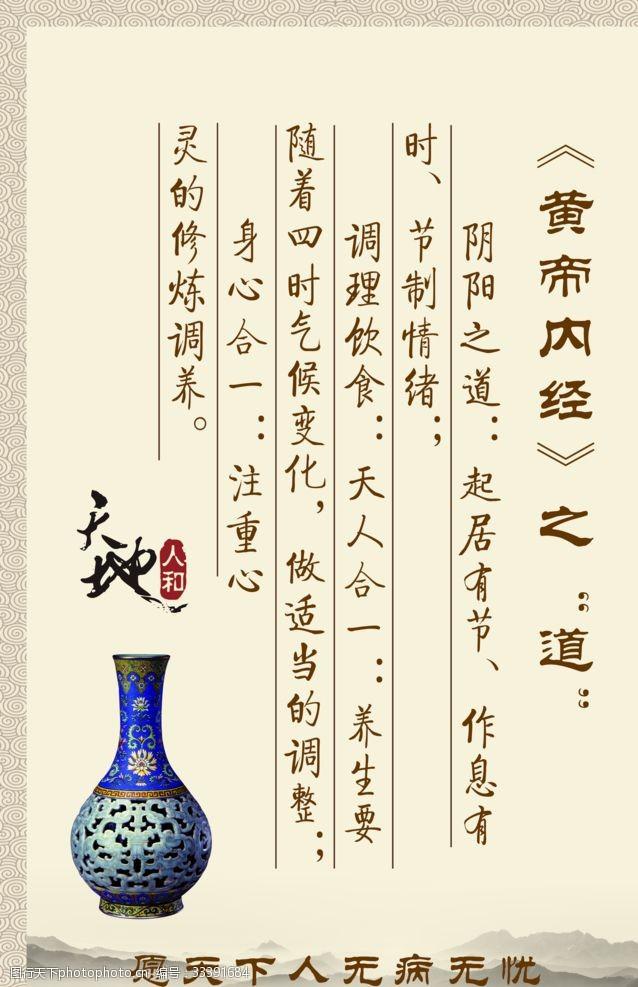 《黄帝内经》之“道”
阴阳之道：起居有节、作息有
时、节制情绪；
调理饮食：天人合一：养生要
随着四时气候变化，做适当的调整；
身心合一：注重心
灵的修炼调养。
天地
人和
愿天下人无病无忧
图行天下photophoto.cn 编号：33391684